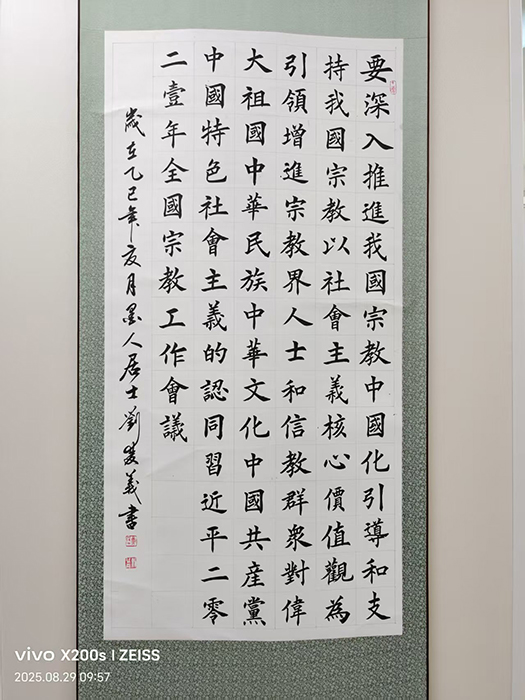 要深入推進我國宗教中國化引導和支
持我國宗教以社會主義核心價值觀為
引領增進宗教界人士和信教群衆對偉
大祖國中華民族中華文化中國共産黨
中國特色社會主義的認同習近平二零
二壹年全國宗教工作會議
歲在乙巳年夏月墨人居士劉發義書
vivo X200s | ZEISS
2025.08.29 09:57